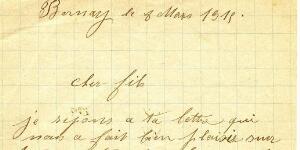 Bernay le 8 Mars 1915.
cher fils
je repons a ta lettre qui
nous a fait bien plaisir sur